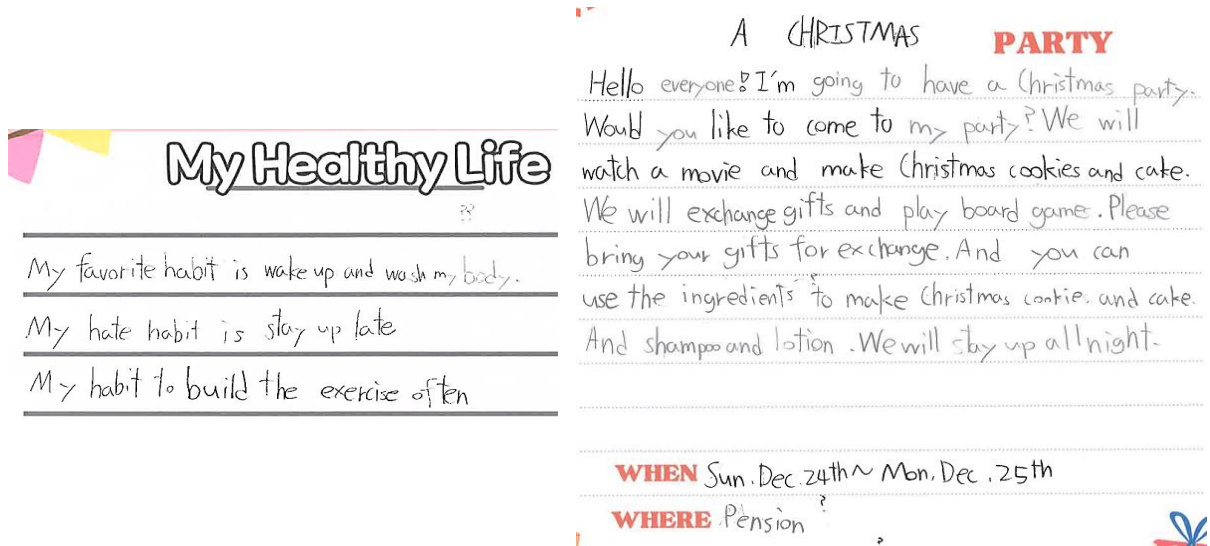 My Healthy Life
??
My favorite habit is wake up and wash my body.
My hate habit is stay up late
My habit to build the exercise often
A CHRISTMAS PARTY
Hello everyone! I'm going to have a Christmas party.
Would you like to come to my party? We will
watch a movie and make Christmas cookies and cake.
We will exchange gifts and play board games. Please
bring your gifts for exchange. And you can
use the ingredients to make Christmas cookie. and cake.
And shampoo and lotion. We will stay up all night.
WHEN Sun. Dec. 24th ~ Mon. Dec. 25th
WHERE Pension ?